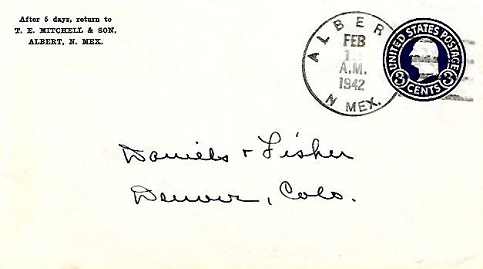 After 5 days, return to
T. E. MITCHELL & SON,
ALBERT, N. MEX.
ALBER
FEB
A.M.
1942
N. MEX.
UNITED STATES POSTAGE
3 CENTS 3
Daniels & Fisher
Denver, Colo.